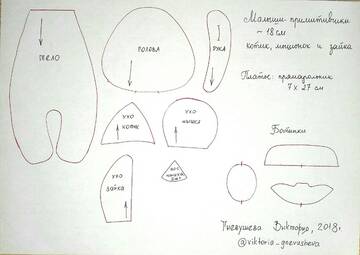 Малыши-примитивчики
~ 18 см
котик, мышонок и зайка
Платье: прямоугольник
7 х 27 см
тело
голова
рука
ухо
котик
ухо
мышка
ухо
зайка
нос
мышка
Ботинки
Гневушева Виктория, 2018г.
@viktoria_gnevusheva